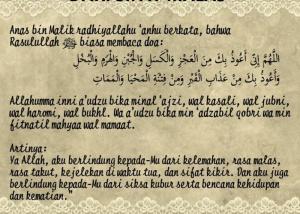 Anas bin Malik radhiyallahu 'anhu berkata, bahwa
Rasulullah ﷺ biasa membaca doa:
اللَّهُمَّ إِنِّى أَعُوذُ بِكَ مِنَ الْعَجْزِ وَالْكَسَلِ وَالْجُبْنِ وَالْهَرَمِ وَالْبُخْلِ
وَأَعُوذُ بِكَ مِنْ عَذَابِ الْقَبْرِ وَمِنْ فِتْنَةِ الْمَحْيَا وَالْمَمَاتِ
Allahumma inni a'udzu bika minal 'ajzi, wal kasali, wal jubni,
wal haromi, wal bukhl. Wa a'udzu bika min 'adzabil qobri wa min
fitnatil mahyaa wal mamaat.
Artinya:
Ya Allah, aku berlindung kepada-Mu dari kelemahan, rasa malas,
rasa takut, kejelekan di waktu tua, dan sifat kikir. Dan aku juga
berlindung kepada-Mu dari siksa kubur serta bencana kehidupan
dan kematian."